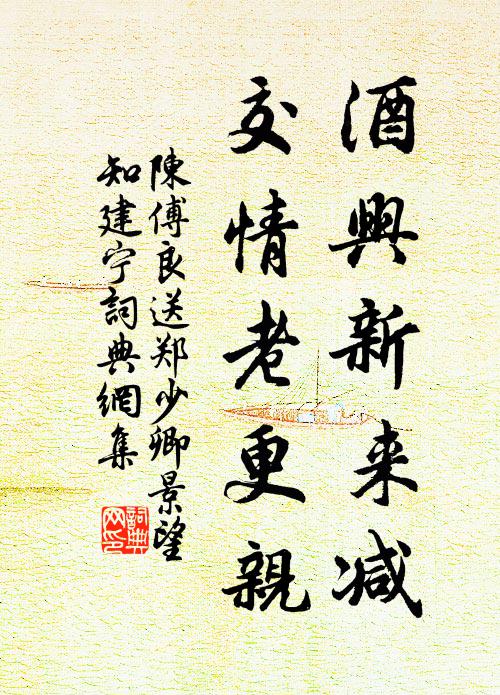 酒興新来减
交情老更親
陳傅良送郑少卿景望
知建宁詞典網集
詞典
网印